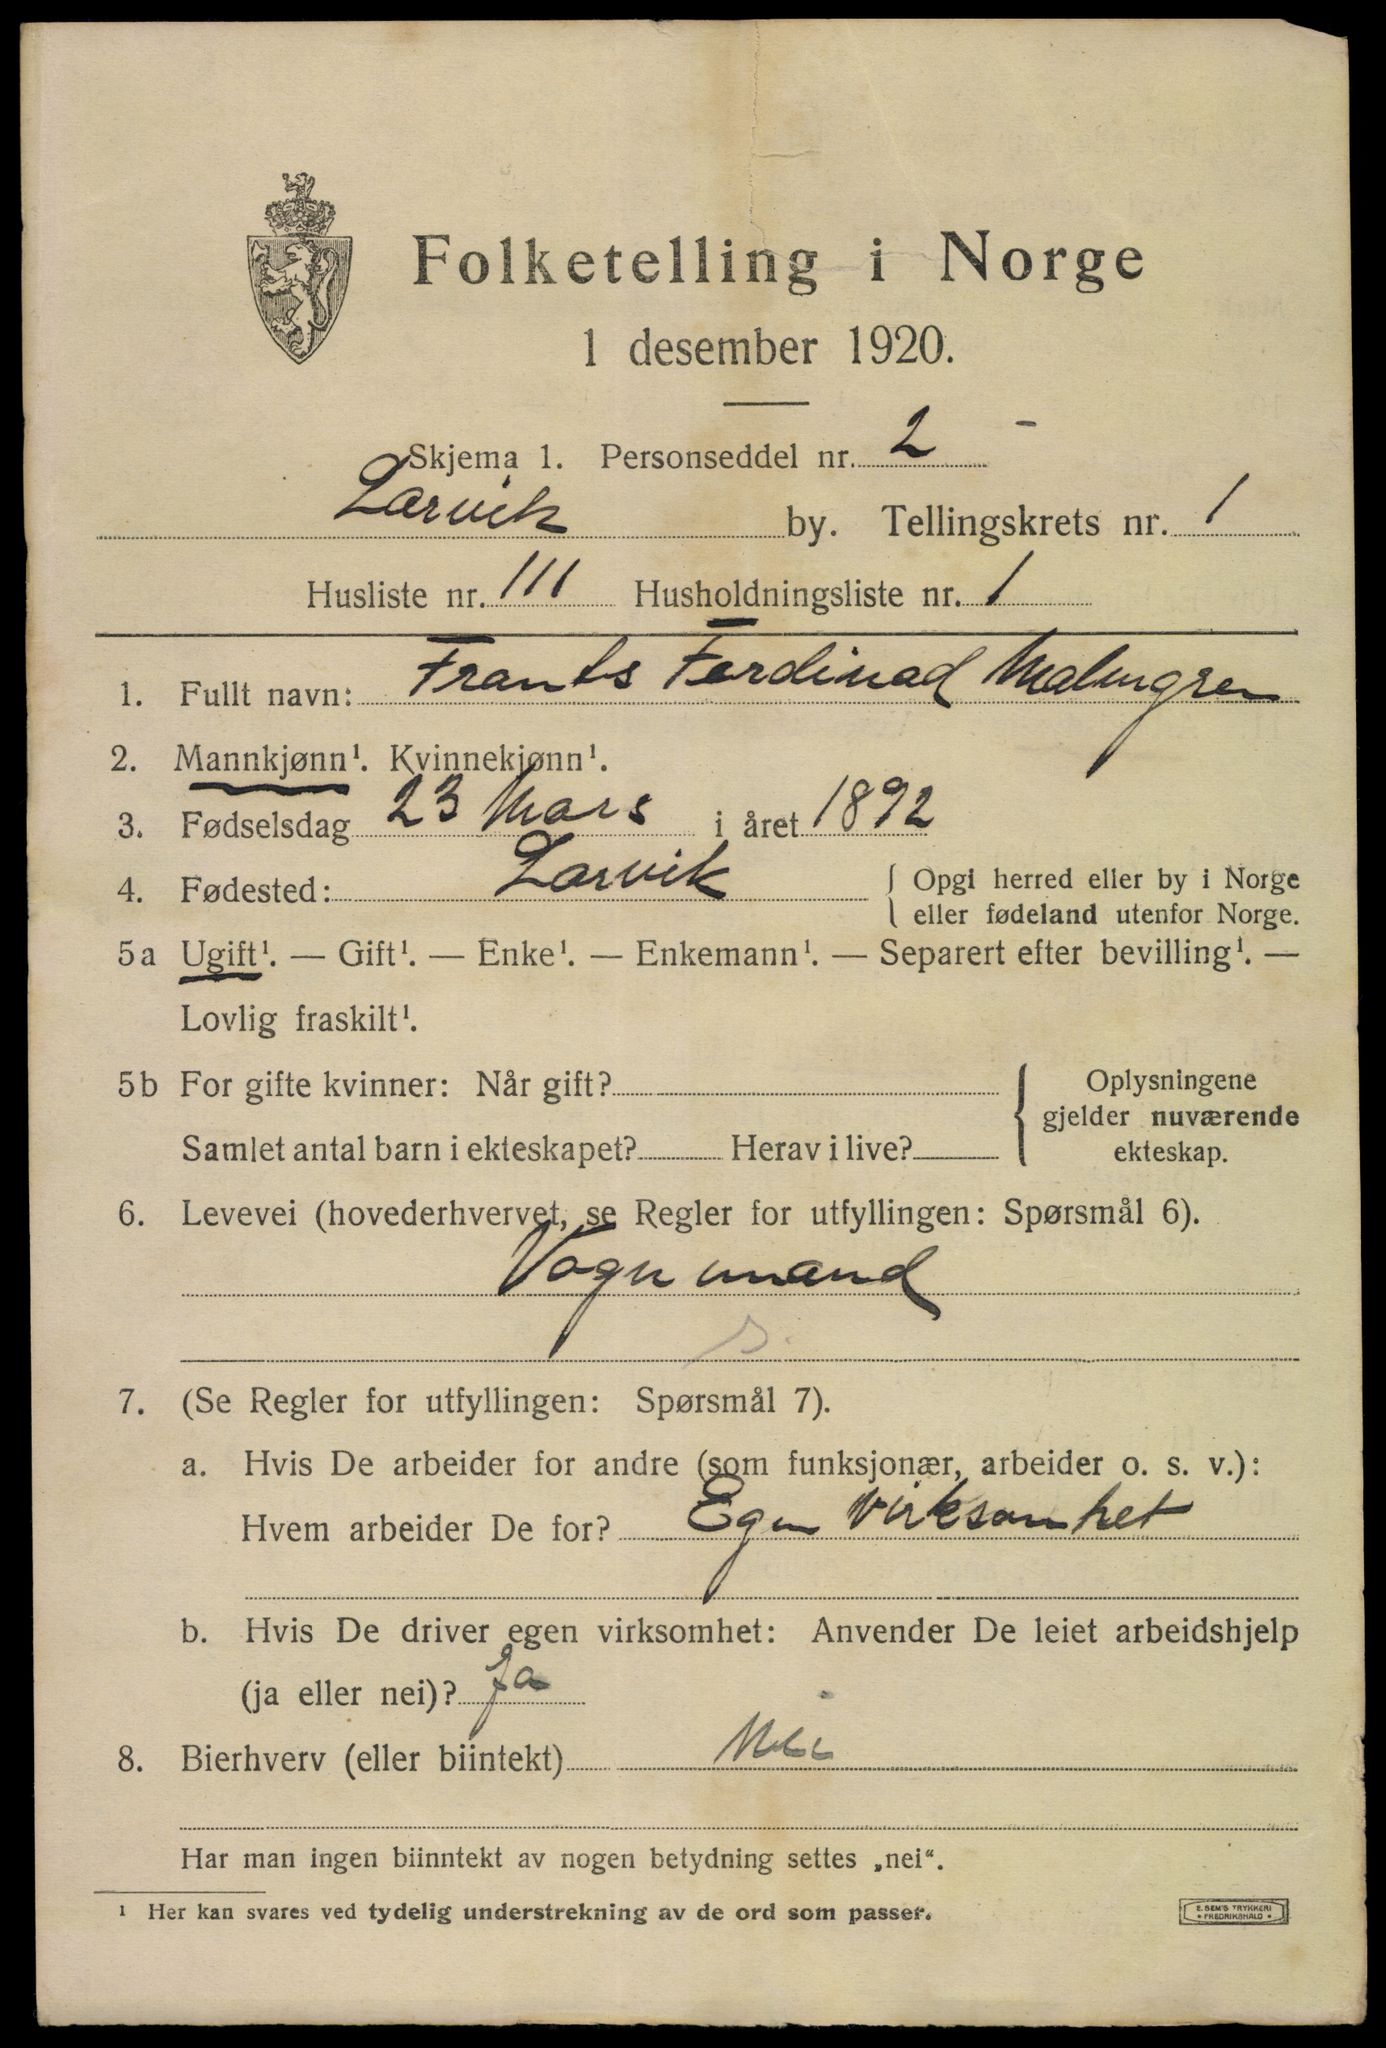 Folketelling i Norge
1 desember 1920.
Skjema 1. Personseddel nr. 2
Larvik by. Tellingskrets nr. 1
Husliste nr. 111 Husholdningsliste nr. 1
1. Fullt navn: Frants Ferdinad Malmgren
2. Mannkjønn¹. Kvinnekjønn¹.
3. Fødselsdag 23 Mars i året 1892
4. Fødested: Larvik { Opgi herred eller by i Norge
eller fødeland utenfor Norge.
5a Ugift¹. — Gift¹. — Enke¹. — Enkemann¹. — Separert efter bevilling¹. —
Lovlig fraskilt¹.
5b For gifte kvinner: Når gift? { Oplysningene
gjelder nuværende
Samlet antal barn i ekteskapet? Herav i live? ekteskap.
6. Levevei (hovederhvervet, se Regler for utfyllingen: Spørsmål 6).
Vognmand
s.
7. (Se Regler for utfyllingen: Spørsmål 7).
a. Hvis De arbeider for andre (som funksjonær, arbeider o. s. v.):
Hvem arbeider De for? Egen virksomhet
b. Hvis De driver egen virksomhet: Anvender De leiet arbeidshjelp
(ja eller nei)? Ja
8. Bierhverv (eller biintekt) Nei
Har man ingen biinntekt av nogen betydning settes „nei“.
¹ Her kan svares ved tydelig understrekning av de ord som passer.
E. SEM'S TRYKKERI
• FREDRIKSHALD •